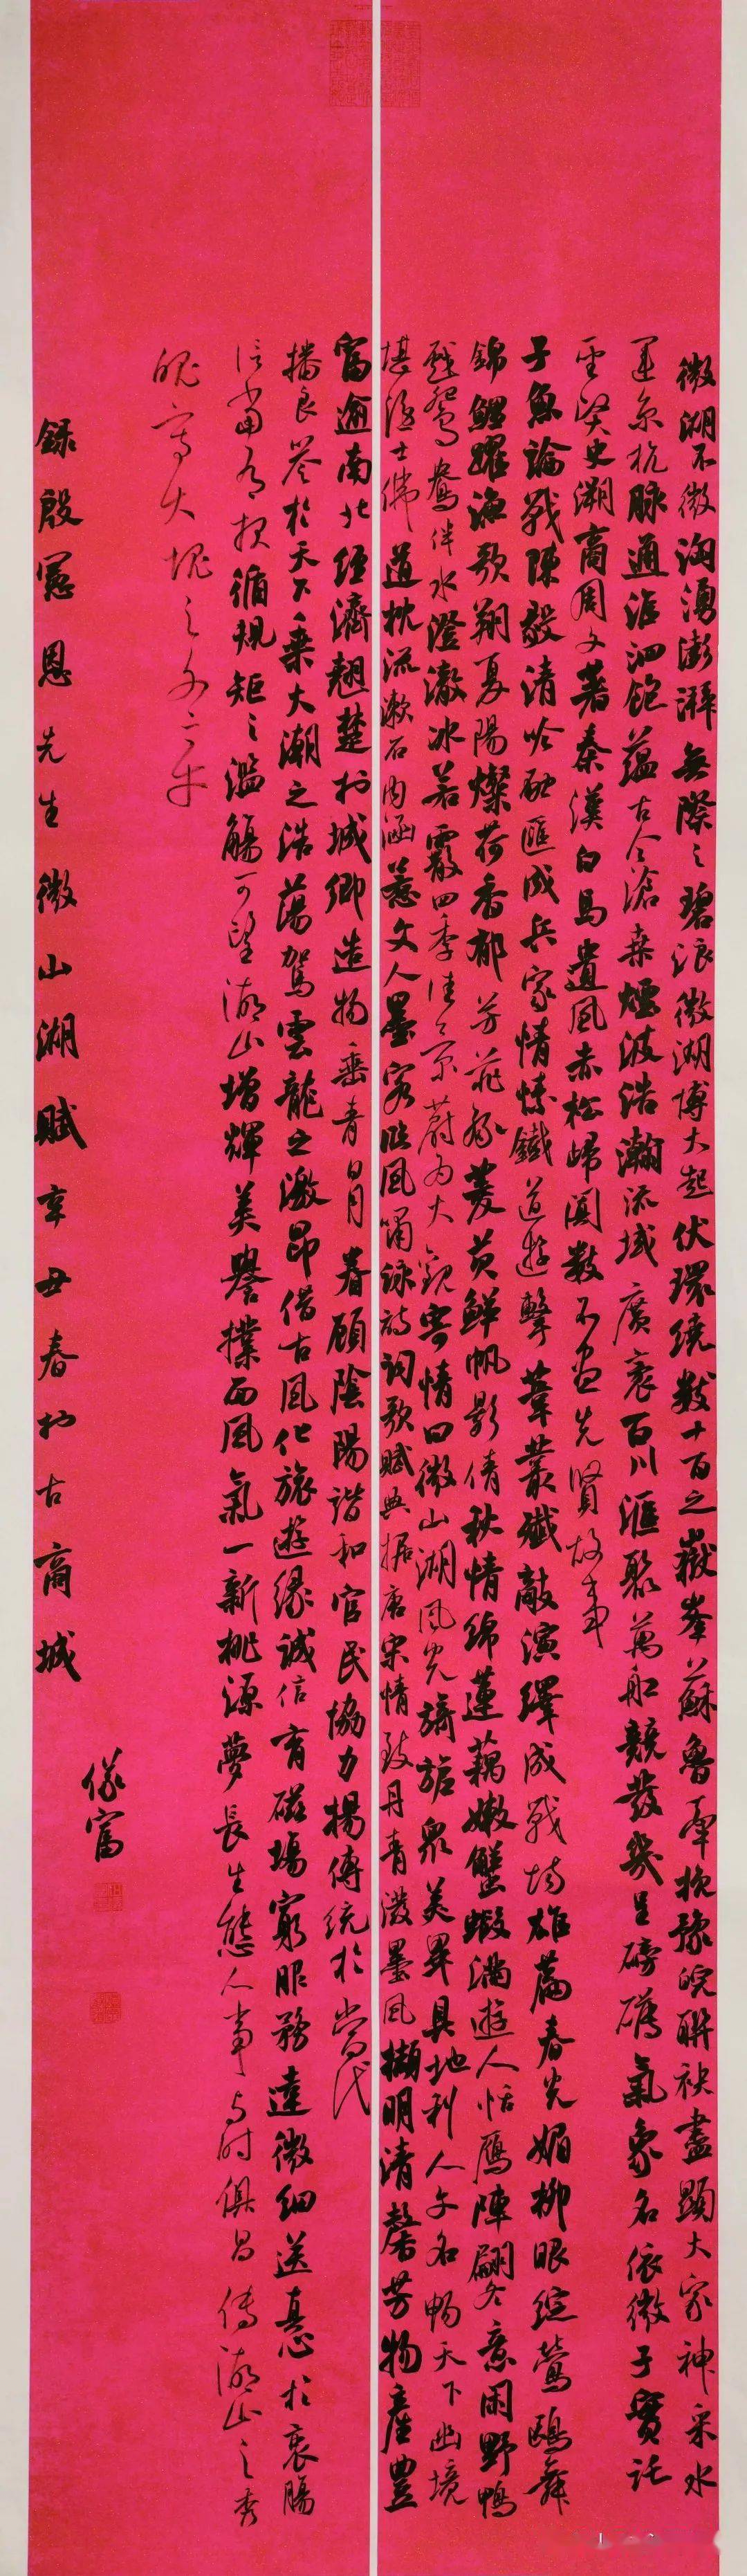 微湖不微洶湧澎湃無際之碧浪微湖博大起伏環繞數十百之嶽峯蘇魯牽挽豫皖聯袂盡顯大家神采水
運京杭脉通淮泗飽蘊古今滄桑煙波浩瀚流域廣袤百川滙聚萬船競發幾呈磅礴氣象名依微子實託
聖賢史溯商周文著秦漢白馬遺風赤松歸閑數不盡先賢故事
子魚論戰陳毅清吟融匯成兵家情愫鐵道遊擊葦叢殲敵演繹成戰場雄篇春光媚柳眼綻鶯鷗舞
錦鯉躍漁歌翔夏陽燦荷香郁芳菲緻菱芡鮮帆影倩秋情綿蓮藕嫩蟹蝦滿遊人恬雁陣翩冬意闲野鴨
戲鴛鴦伴水澄澈冰若霰四季佳景蔚為大觀寄情曰微山湖風光旖旎眾美畢具地利人和名暢天下幽境
堪隱士佛道枕流漱石內涵惹文人墨客臨風嘯詠詩詞歌賦典據唐宋情致丹青潑墨風擷明清馨芳物產豐
富逾南北經濟翹楚於城鄉造物垂青日月眷顧陰陽諧和官民協力揚傳統於當代
播良譽於天下乘大潮之浩蕩駕雲龍之激昂借古風化旅遊緣誠信育磁場窮服務達微細送意於衷腸
信當有規循規矩之濫觴可望湖山增輝美譽撲面風氣一新桃源夢長生態人事与时俱昌傳湖山之秀
魄寫大塊之文章
錄殷憲恩先生微山湖賦辛丑春於古商城
保富